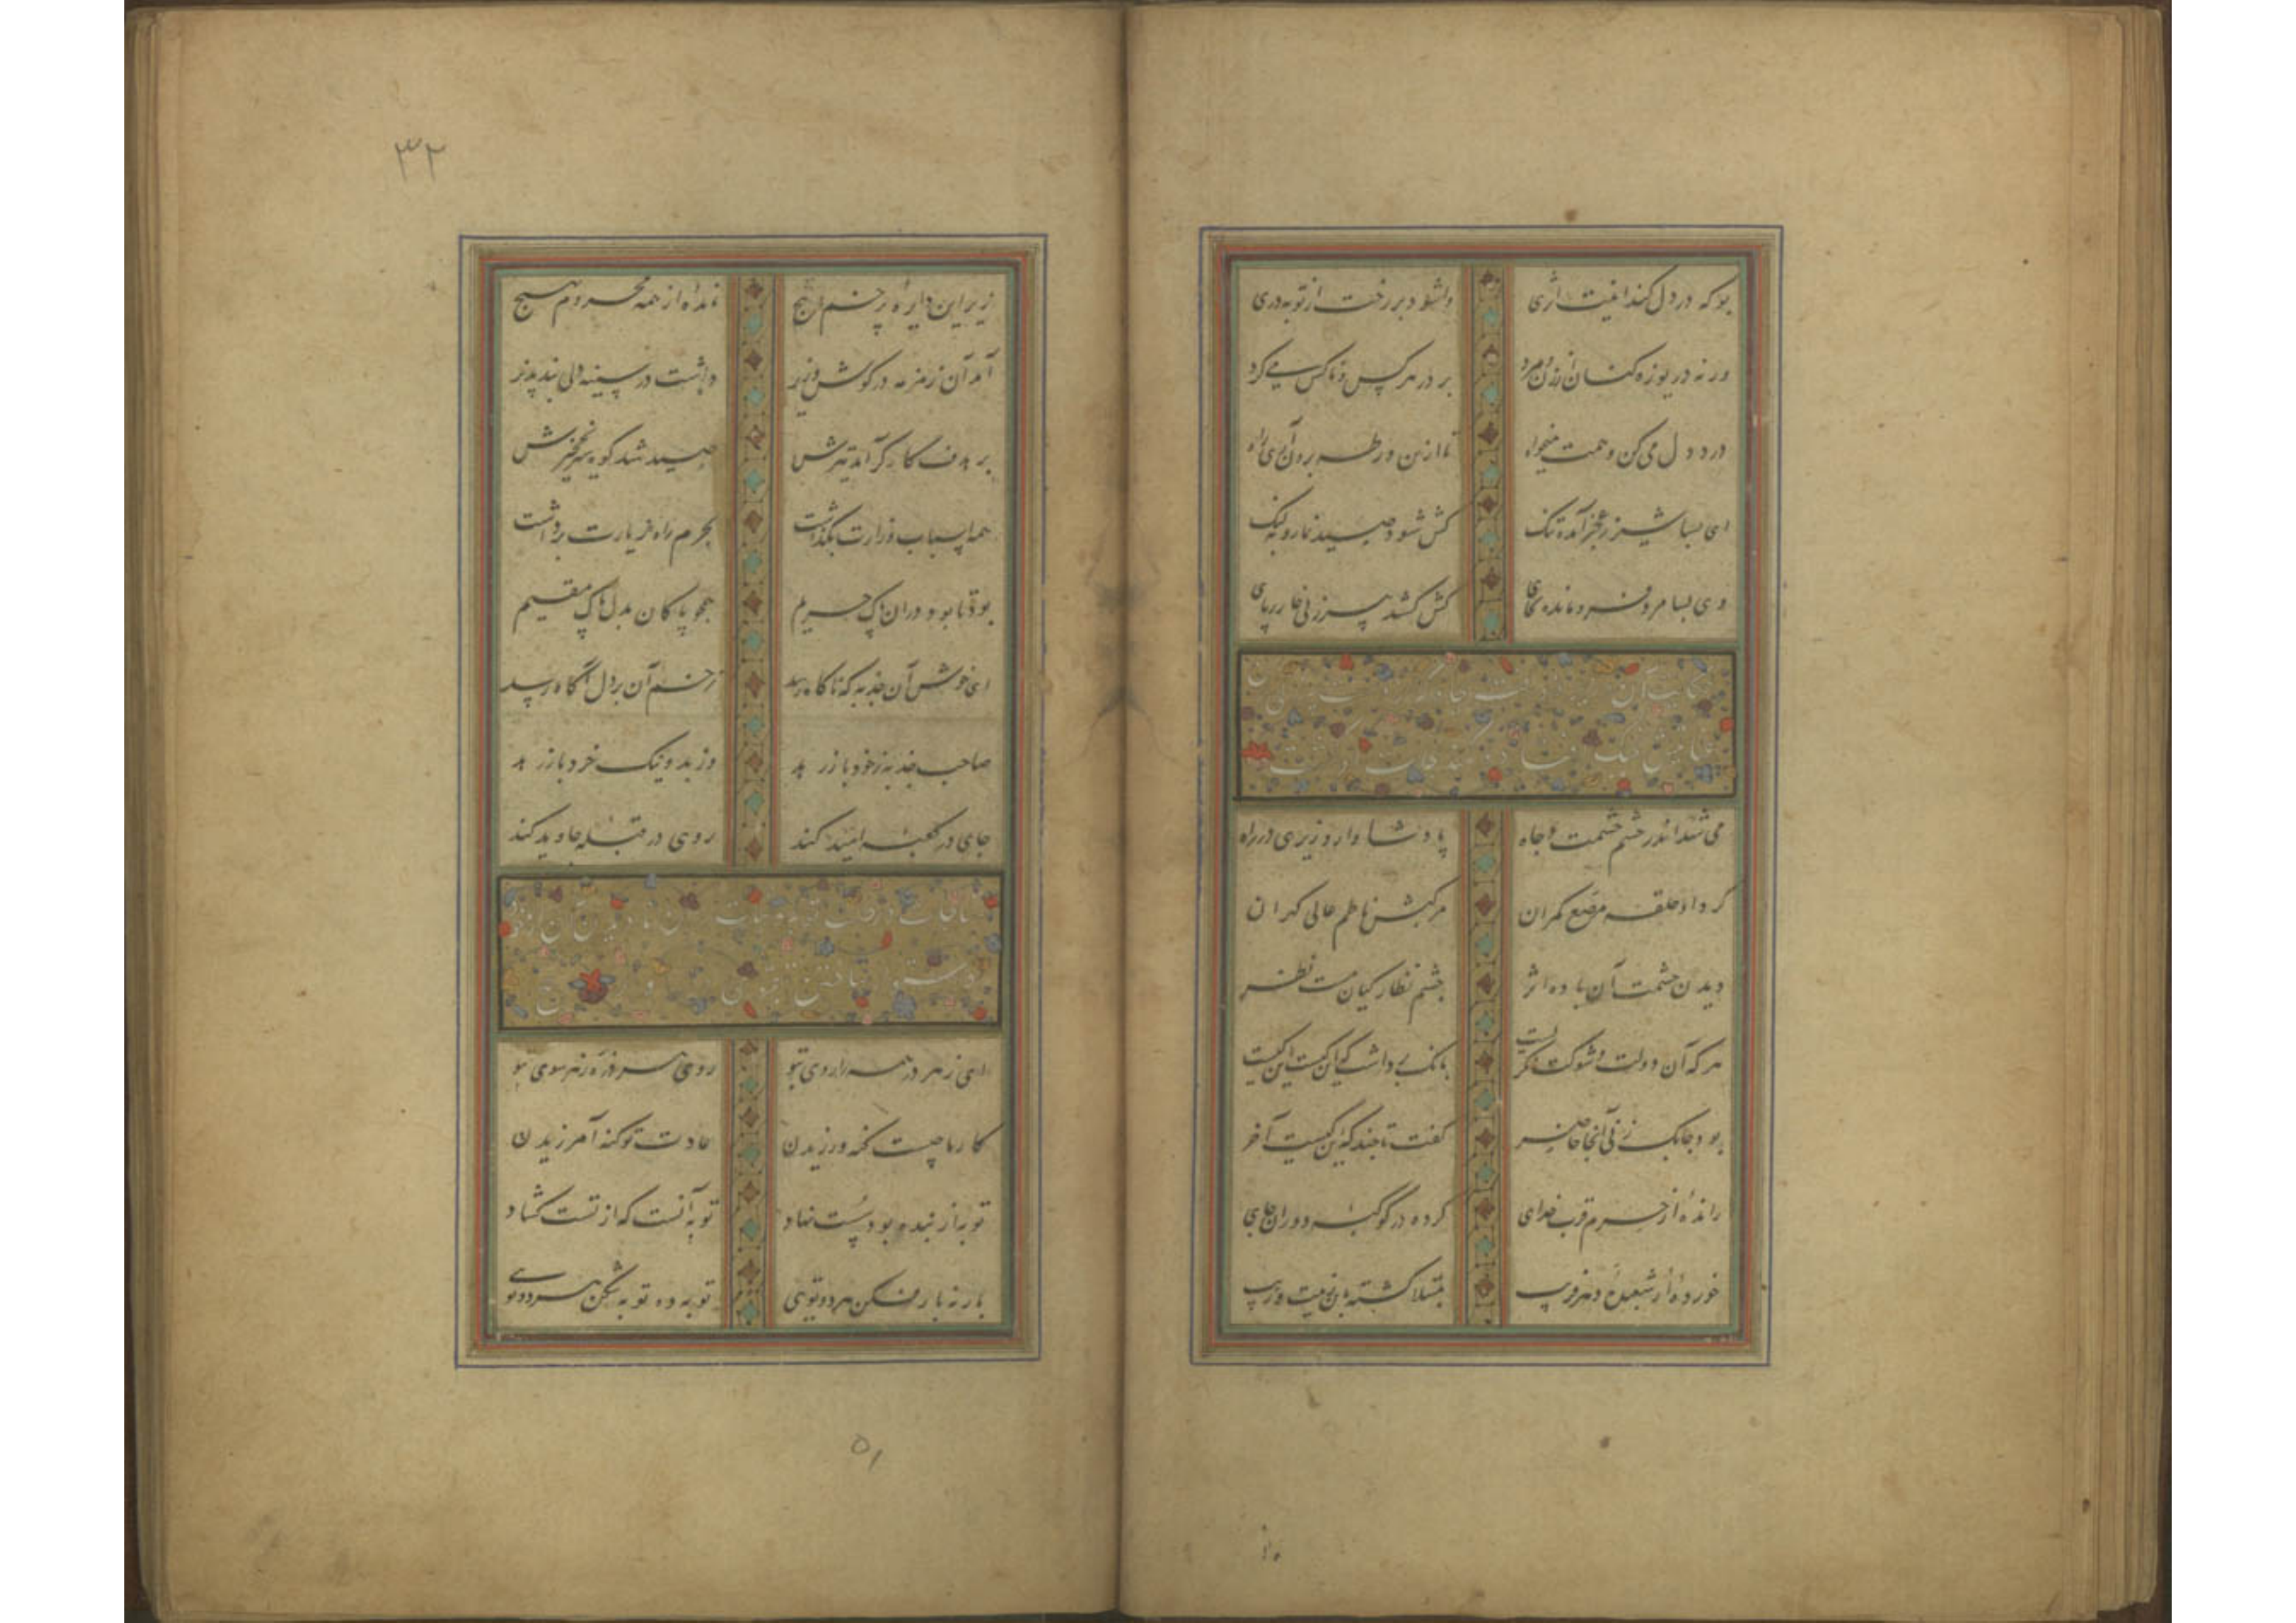 بو که در دل کند اینت اثری وا شود بر رخت از توبه دری
ور نه دریوزه کنان از زن و مرد بر در هر کس و ناکس می گرد
درد دل می کن و همت میخواه تا ازین ورطه برون آری راه
ای بسا شیر ز عجز آمده تنگ کش شود صید نما روبه لنگ
وی بسا مرد فرو مانده بجای کش کشد پیر زنی خار ز پای
حکایت آن
می شد اندر حشم حشمت و جاه پادشا وار وزیری در راه
گرد او حلقه مرصع کمران مرکبش ناظم عالی گهران
دیدن حشمت آن باده اثر چشم نظارگیان مست نظر
هر که آن دولت و شوکت نگریست بانگ برداشت که این کیست این کیست
بود چابک زنی آنجا حاضر گفت تا چند که این کیست آخر
راندۀ از حرم قرب خدای کرده در کوکبه دوران جای
خوردۀ از شعبدۀ دهر فریب مبتلا گشته باین زینت و زیب
۳۲
زیر این دایره پر خم و پیچ ماندۀ از همه محروم بهیچ
آمد آن زمزمه در گوش وزیر داشت در سینه دلی پند پذیر
بر هدف کارگر آمد تیرش صید شد نخجیرش
همه اسباب وزارت بگذاشت بحرم راه زیارت برداشت
بود تا بود در آن پاک حریم همچو پاکان بدل پاک مقیم
ای خوش آن جذبه که ناگاه رسد زخم آن بر دل آگاه رسد
صاحب جذبه ز خود باز رهد وز بد و نیک خرد باز رهد
جای در کعبه امید کند روی در قبله جاوید کند
مناجات در
ای ز هر در همه را روی بتو روی هر ذره ز هر سوی بتو
کار ما چیست گنه ورزیدن عادت تو گنه آمرزیدن
توبه از بنده بود سست نهاد توبه آنست که از تست گشاد
بار نه بار فکن هر دو توی توبه ده توبه شکن هر دو توی
۵۱